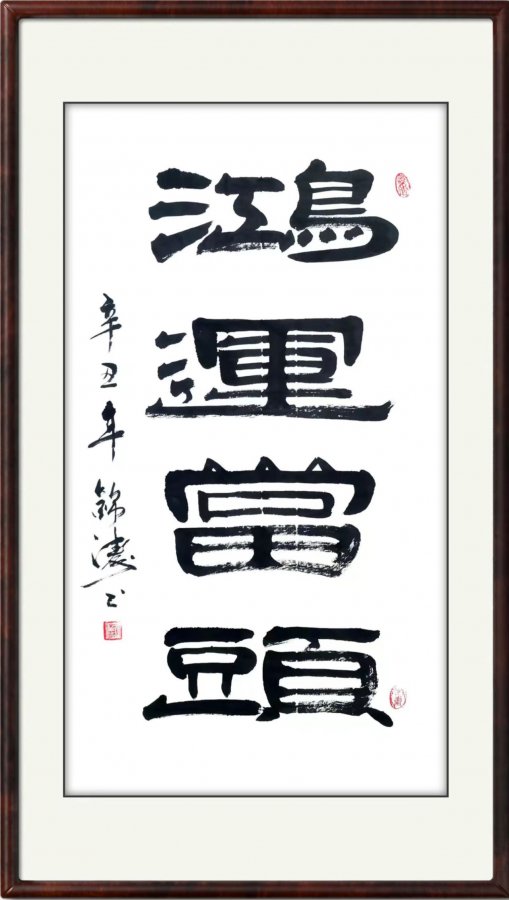 鴻運當頭
辛丑年 錦濤書